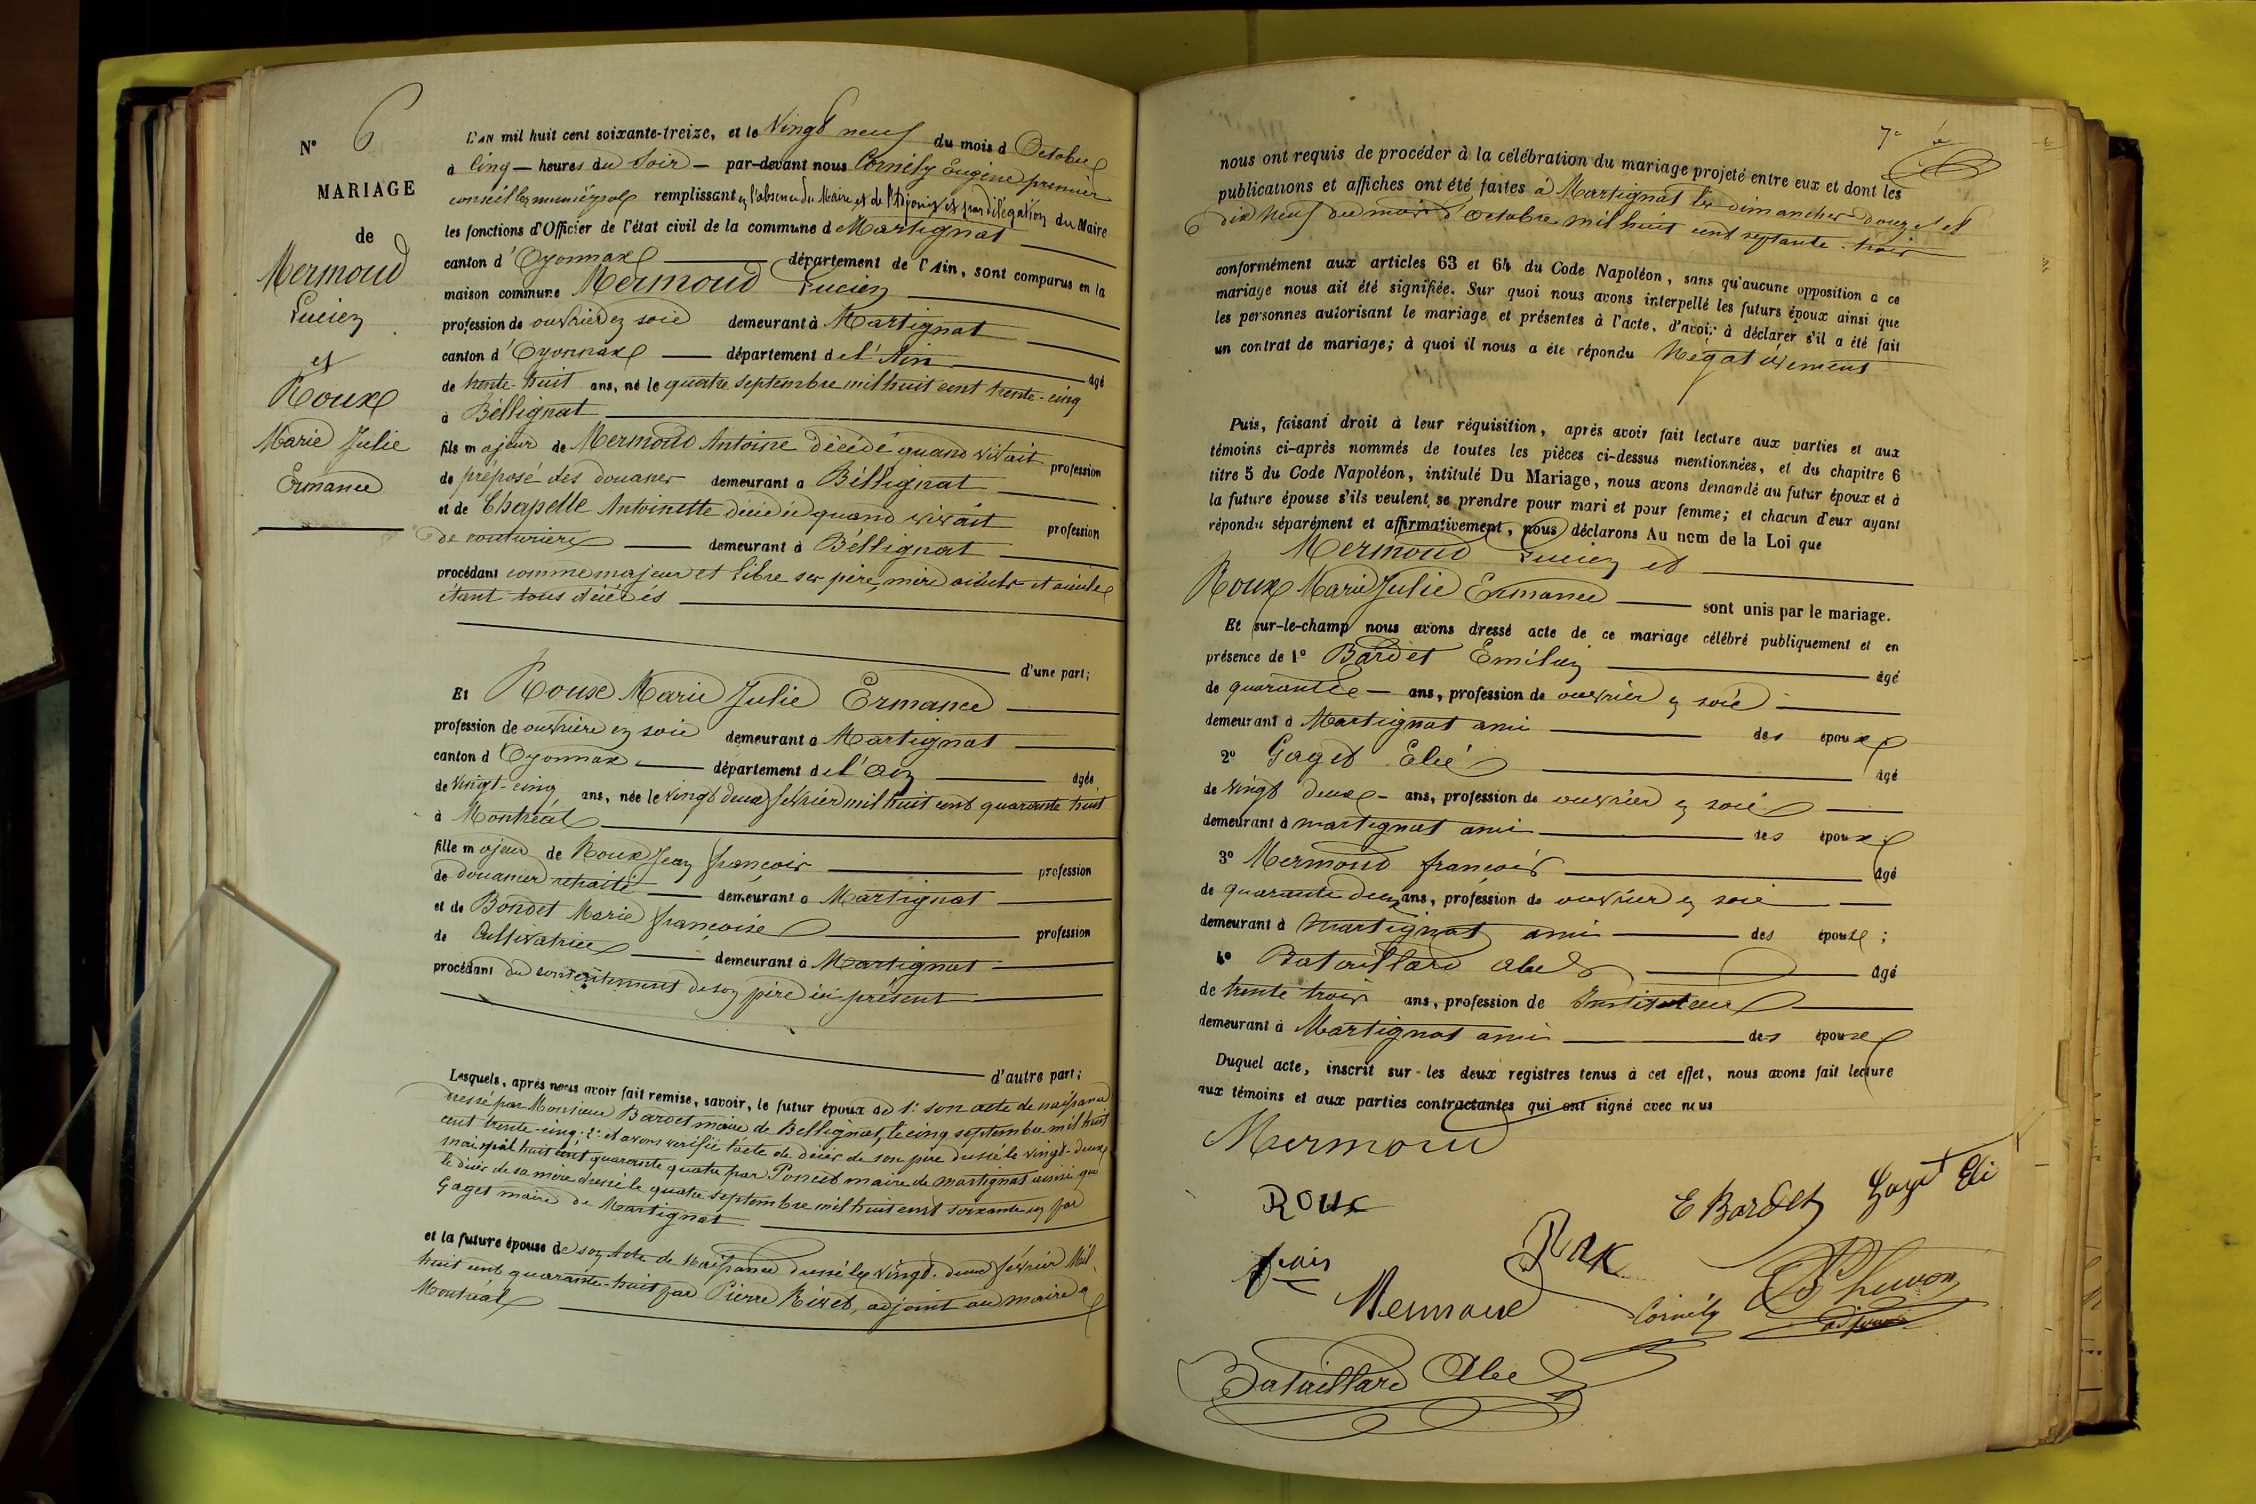 N° 6
MARIAGE
de
Mermoud
Lucien
et
Roux
Marie Julie
Ermance
L'AN mil huit cent soixante-treize, et le Vingt neuf du mois d Octobre
à Cinq — heures du Soir — par-devant nous Cornély Eugène premier
conseiller municipal remplissant en l'absence du Maire et de l'Adjoint et par délégation du Maire
les fonctions d'Officier de l'état civil de la commune d Martignat
canton d'Oyonnax département de l'Ain, sont comparus en la
maison commune Mermoud Lucien
profession de ouvrier en soie demeurant à Martignat
canton d'Oyonnax département de l'Ain âgé
de trente-huit ans, né le quatre septembre mil huit cent trente-cinq
à Béllignat
fils majeur de Mermoud Antoine décédé quand vivait profession
de préposé des douanes demeurant a Béllignat
et de Chapelle Antoinette décédée quand vivait profession
de couturière demeurant à Béllignat
procédant comme majeur et libre ses père, mère aieuls et aieules
étant tous décédés
d'une part;
Et Roux Marie Julie Ermance
profession de ouvrière en soie demeurant a Martignat
canton d Oyonnax département de l'Ain âgée
de vingt-cinq ans, née le vingt deux février mil huit cent quarante huit
à Montréal
fille majeur de Roux Jean françois profession
de douanier retraité demeurant a Martignat
et de Bondet Marie françoise profession
de Cultivatrice demeurant à Martignat
procédant du consentement de son père ici présent
d'autre part;
Lesquels, après nous avoir fait remise, savoir, le futur époux de 1° son acte de naissance
dressé par Monsieur Bardet maire de Bellignat, le cinq septembre mil huit
cent trente-cinq. 2° et avons vérifié l'acte de décès de son père dressé le vingt-deux
mai mil huit cent quarante quatre par Poncet maire de Martignat ainsi que
le décès de sa mère dressé le quatre septembre mil huit cent soixante un par
Gaget maire de Martignat
et la future épouse de son Acte de Naissance dressé le vingt-deux février Mil
huit cent quarante-huit par Pierre Rivet, adjoint au maire a
Montréal
7e
nous ont requis de procéder à la célébration du mariage projeté entre eux et dont les
publications et affiches ont été faites à Martignat les dimanches douze et
dix neuf du mois d'octobre mil huit cent septante-trois
conformément aux articles 63 et 64 du Code Napoléon, sans qu'aucune opposition a ce
mariage nous ait été signifiée. Sur quoi nous avons interpellé les futurs époux ainsi que
les personnes autorisant le mariage et présentes à l'acte, d'avoir à déclarer s'il a été fait
un contrat de mariage; à quoi il nous a été répondu Négativement
Puis, faisant droit à leur réquisition, après avoir fait lecture aux parties et aux
témoins ci-après nommés de toutes les pièces ci-dessus mentionnées, et du chapitre 6
titre 5 du Code Napoléon, intitulé Du Mariage, nous avons demandé au futur époux et à
la future épouse s'ils veulent se prendre pour mari et pour femme; et chacun d'eux ayant
répondu séparément et affirmativement, nous déclarons Au nom de la Loi que
Mermoud Lucien et
Roux Marie Julie Ermance sont unis par le mariage.
Et sur-le-champ nous avons dressé acte de ce mariage célébré publiquement et en
présence de 1° Bardet Emilien âgé
de quarante — ans, profession de ouvrier en soie
demeurant à Martignat ami des époux
2° Gaget Elié âgé
de vingt deux — ans, profession de ouvrier en soie
demeurant à martignat ami des époux
3° Mermoud françois âgé
de quarante deux ans, profession de ouvrier en soie
demeurant à Martignat ami des époux ;
4° Bataillard Abel âgé
de trente trois ans, profession de Instituteur
demeurant à Martignat ami des époux
Duquel acte, inscrit sur les deux registres tenus à cet effet, nous avons fait lecture
aux témoins et aux parties contractantes qui ont signé avec nous
Mermoud
Roux
E Bardet Gaget Eli
Mermoud
Cornély
Bataillard Abel